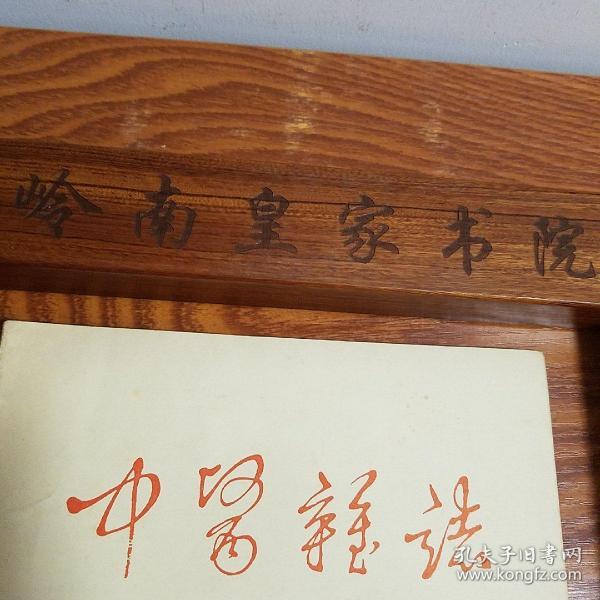 岭南皇家书院
中醫雜誌
孔夫子旧书网
www.kongfz.com